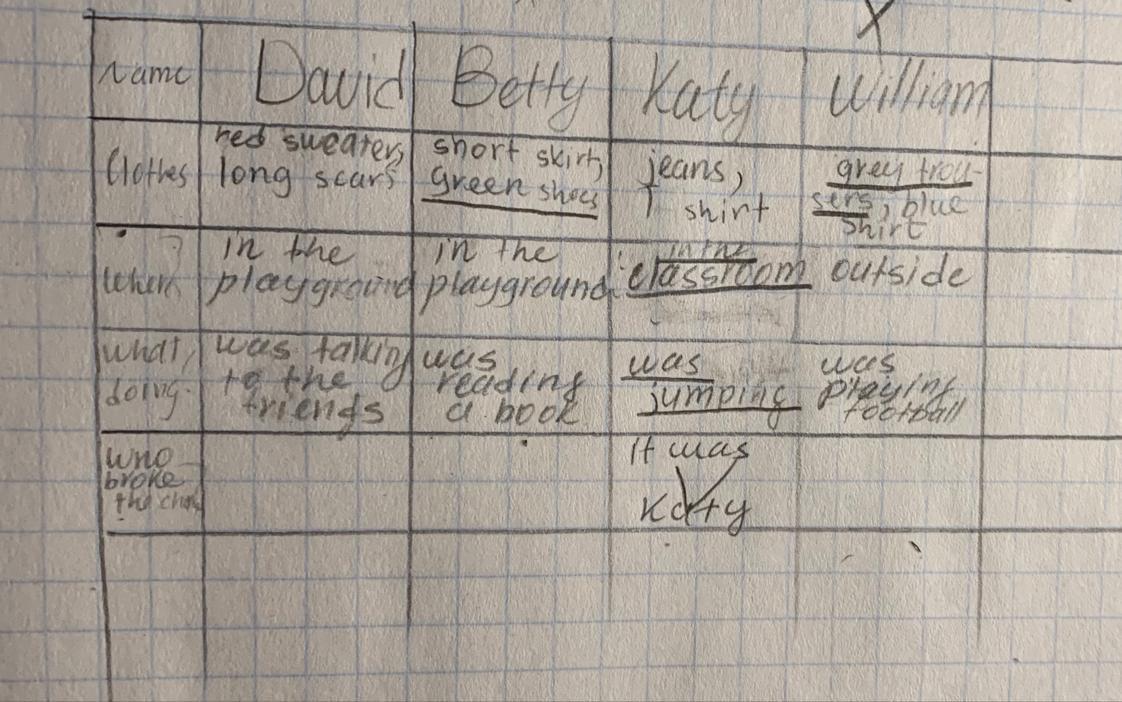 Name David Betty Katy William
Clothes
red sweater,
long scarf
short skirt,
green shoes
jeans,
T shirt
grey trou-
sers, blue
shirt
Where
in the
playground
in the
playground
in the
classroom
outside
what
doing
was talking
to the
friends
was
reading
a book
was
jumping
was
playing
football
who
broke
the
It was
Katy